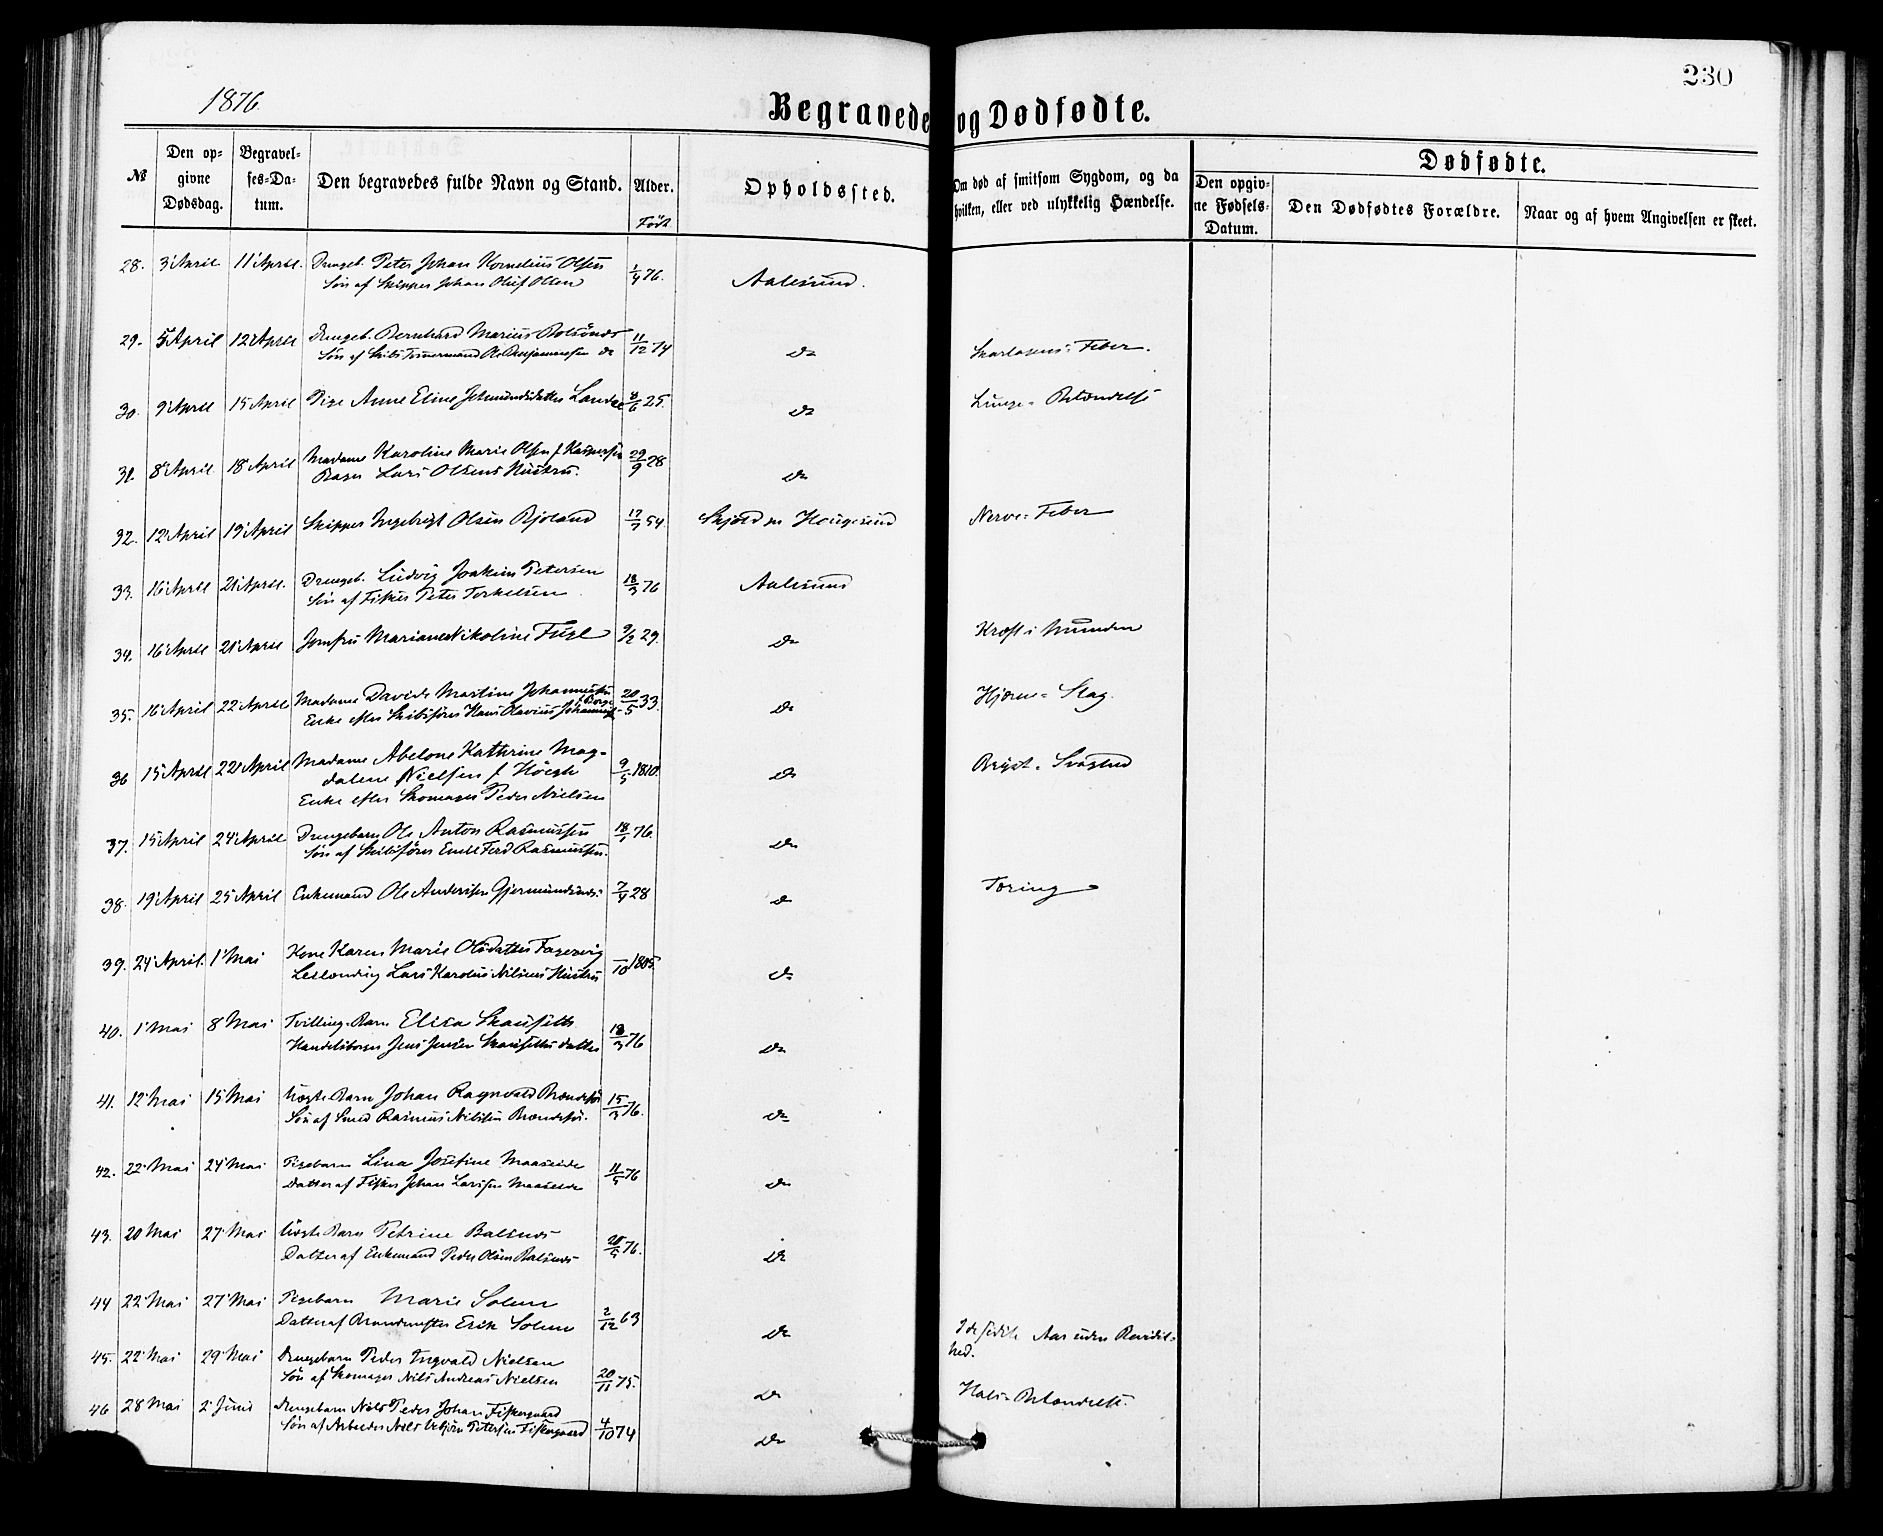 230
1876
Begravede og Dødfødte.
Dødfødte.
№
Den op-
givne
Dødsdag.
Begravel-
ses-Da-
tum.
Den begravedes fulde Navn og Stand.
Alder.
Født
Opholdssted.
Om død af smitsom Sygdom, og da
hvilken, eller ved ulykkelig Hændelse.
Den opgiv-
ne Fødsels-
Datum.
Den Dødfødtes Forældre.
Naar og af hvem Angivelsen er skeet.
28. 3 April 11 April. Drengeb. Peter Johan Kornelius Olsen 1/4 76. Aalesund.
Søn af Skipper Johan Oluf Olsen
29. 5 April 12 April Drengeb. Bernhard Marius Bolsønds 11/12 74 do Skarlagens-Feber.
Søn af Skibs Tømmermand Ole Benjaminsen do
30. 9 April 15 April Pige Anne Eline 8/6 25. do Lunge-Betændelse
31. 8 April 18 April Madame Karoline Marie Olsen f Kaspersen 29/9 28 do
Lars Olsens Hustru.
32. 12 April 19 April Skipper Ingebrigt Olsen Bjoland 17/7 54. Skjold pr Haugesund Nerve-Feber
33. 16 April 21 April. Drengeb. Ludvig Joakim Petersen 18/3 76 Aalesund
Søn af Fisker Peter Torkelsen
34. 16 April 21 April Jomfru Mariane Nikoline Fugl 9/2 29. do Kræft i Munden
35. 16 April 22 April Madame Davida Martine Johannessen 20/5 33. do Hjerne-Slag.
Enke efter Skibsfører Hans Olavius Johannes-
36 15 April 22 April Madame Abelone Kathrine Mag- 9/5 1810. do Bryst-Svaghed
dalene Nielsen f Höegh
Enke efter Skomager Peder Nielsen
37. 15 April 24 April Drengebarn Ole Anton Rasmussen 76. do
Søn af Skibsfører Emil Ferd Rasmussen.
38. 19 April 25 April Enkemand Ole Andersen Gjermundsnes. 7/4 28 do Tæring
39. 24 April. 1 Mai Kone Karen Marie Olsdatter Fagervig /10 1805. do
Lars Karolus Nilsens Hustru
40. 1 Mai 8 Mai Tvilling-Barn Elisa Skouseth 13/3 76 do
Handelsborger Jens Jensen Skouseths datter
41. 12 Mai 15 Mai Uægte Barn Johan Ragnvald 15/3 76. do
Søn af Smed Rasmus Nilsen
42. 22 Mai 24 Mai Pigebarn Lina Josefine Maaseide 11/5 76 do
Datter af Fisker Johan Larssen Maaseide
43. 20 Mai 27 Mai Uægte Barn Petrine Balsnes 20/5 76. do
Datter af Enkemand Peder Olsen Balsnes
44 22 Mai 27 Mai Pigebarn Marie Solem 2/12 63 do I de sidste Aar uden Bevidst-
hed.
Datter af Brandmester Erik Solem
45. 22 Mai 29 Mai Drengebarn Peder Ingvald Nielsen 20/11 75. do Hals-Betændelse.
Søn af Skomager Nils Andreas Nielsen
46 28 Mai 2 Juni Drengebarn Nils Peder Johan Fiskergaard 4/10 74 do
Søn af Arbeider Nils Petersen Fiskergaard